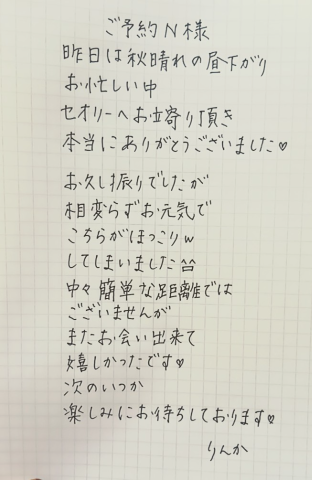 ご予約N様
昨日は秋晴れの昼下がり
お忙しい中
セオリーへお立寄り頂き
本当にありがとうございました♥
お久し振りでしたが
相変らずお元気で
こちらがほっこりw
してしまいました^^
中々簡単な距離では
ございませんが
またお会い出来て
嬉しかったです♥
次のいつか
楽しみにお待ちしております♥
りんか